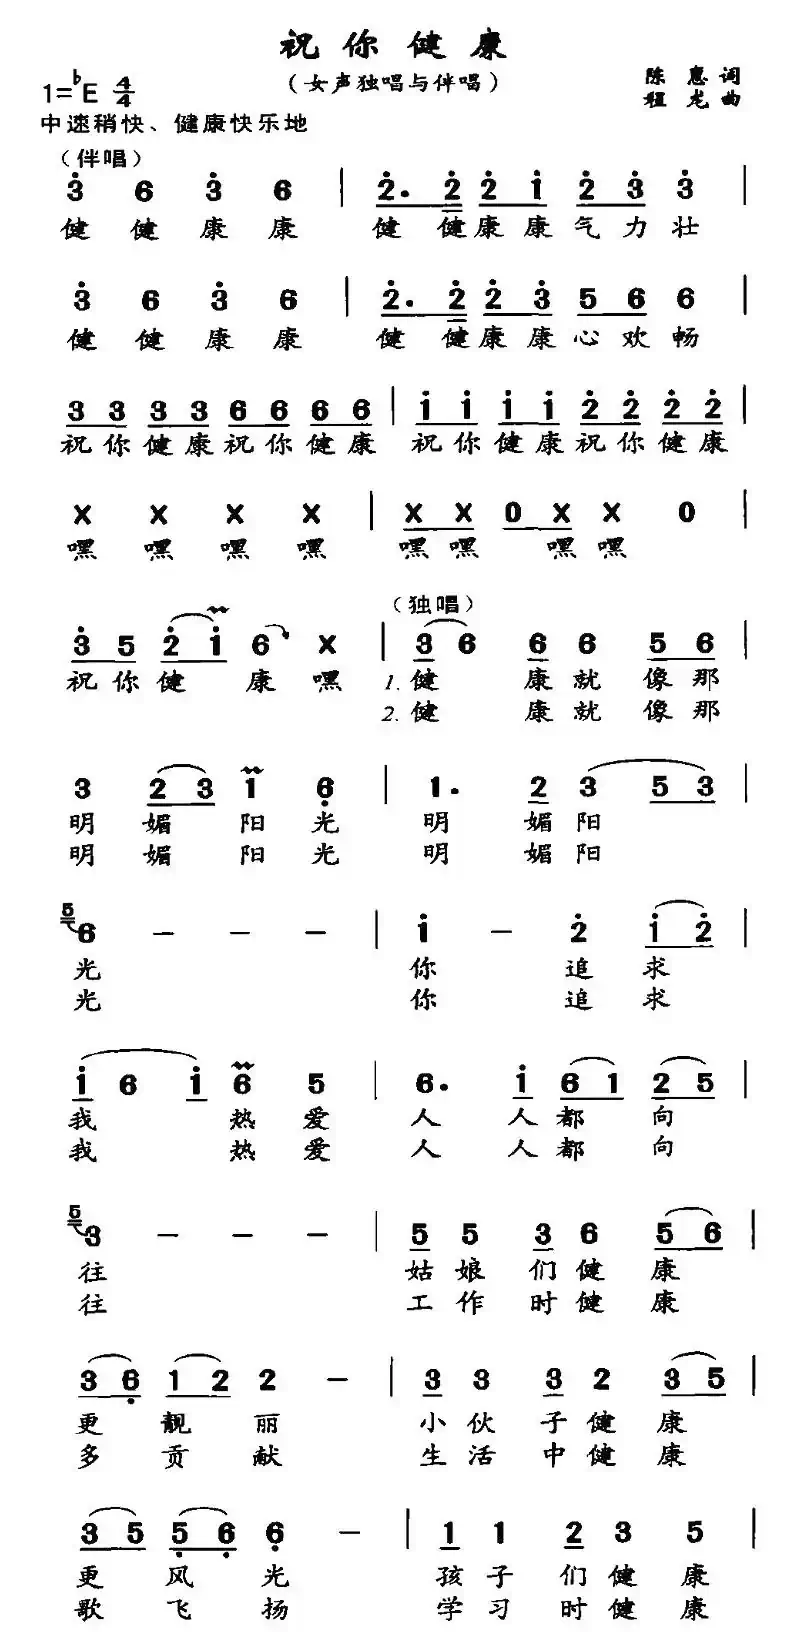 祝你健康
（女声独唱与伴唱）
陈惠词
程龙曲
1=♭E 4/4
中速稍快、健康快乐地
（伴唱）
3 6 3 6 | 2. 2 2 1 2 3 3 |
健 健 康 康 健 健康 康 气 力 壮
3 6 3 6 | 2. 2 2 3 5 6 6 |
健 健 康 康 健 健康 康 心 欢 畅
3 3 3 3 6 6 6 6 | 1 1 1 1 2 2 2 2 |
祝你健康祝你健康 祝你健康祝你健康
X X X X | X X 0 X X 0 |
嘿 嘿 嘿 嘿 嘿嘿 嘿嘿
（独唱）
3 5 2 1 6 X | 3 6 6 6 5 6 |
祝你健 康嘿 1.健 康就 像那
2.健 康就 像那
3 2 3 1 6 | 1. 2 3 5 3 |
明 媚 阳 光 明 媚阳
明 媚 阳 光 明 媚阳
5 6 - - - | 1 - 2 1 2 |
光 你 追 求
光 你 追 求
1 6 1 6 5 | 6. 1 6 1 2 5 |
我 热 爱 人 人都 向
我 热 爱 人 人都 向
5 3 - - - | 5 5 3 6 5 6 |
往 姑娘 们健 康
往 工作 时健 康
3 6 1 2 2 - | 3 3 3 2 3 5 |
更 靓 丽 小伙 子健 康
多 贡 献 生活 中健 康
3 5 5 6 6 - | 1 1 2 3 5 |
更 风 光 孩子 们健 康
歌 飞 扬 学习 时健 康